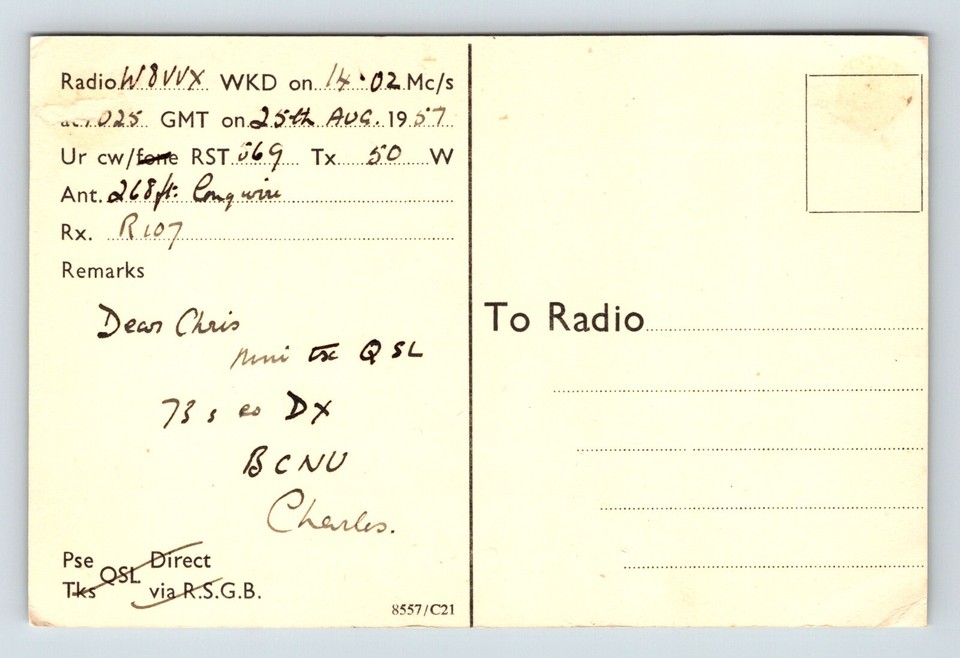 Radio W8VVX WKD on 14.02 Mc/s
025 GMT on 25th AUG. 1957
Ur cw/fone RST 569 Tx 50 W
Ant. 268ft. Longwire
Rx. R107
Remarks
Dear Chris
QSL
73s es DX
BCNU
Charles.
Pse QSL Direct
Tks via R.S.G.B.
8557/C21
To Radio